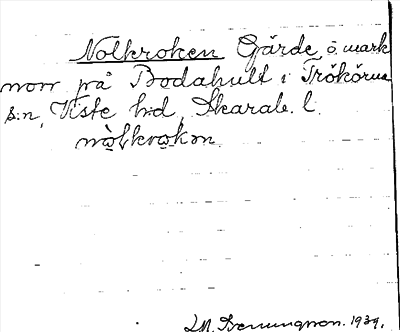 Nolkroken Gärde å mark
norr på Bodahult i Trökörna
s:n, Viste h:d, Skarab. l.
nòlkrokən.
1939.